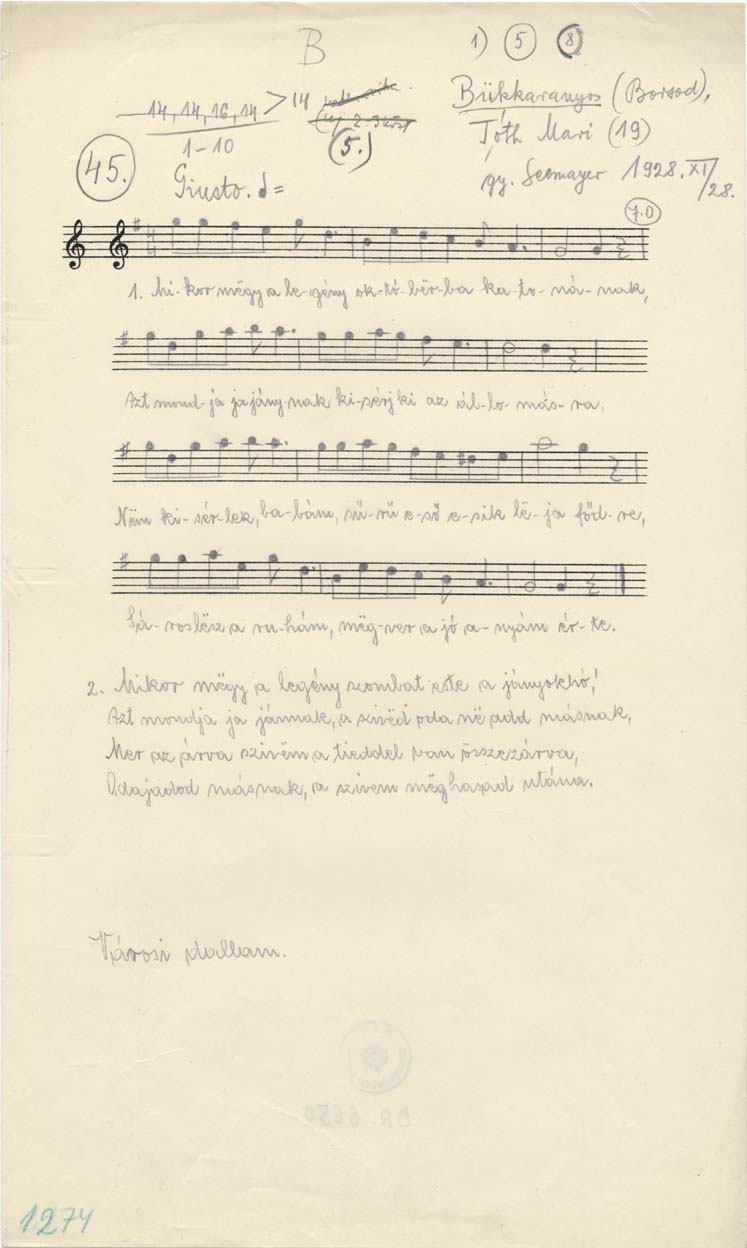 B
1) 5 8
14, 14, 16, 14 > 14
1-10
(5.)
Bükkaranyos (Borsod),
Tóth Mari (19)
gy. Seemayer 1928. XI/28.
45.
Giusto. =
7.0
1. Mi-kor mëgy a le-gény ok-tó-bër-ba ka-to-ná-nak,
Azt mond-ja ja jány-nak ki-sérj ki az ál-lo-más-ra,
Nëm ki-sér-lek, ba-bám, sü-rü e-ső e-sik lë-ja föd-re,
Sá-ros lësz a ru-hám, mëg-ver a jó a-nyám ér-te.
2. Mikor mëgy a legény szombat este a jányokhó,
Azt mondja ja jánnak, a szivëd oda në add másnak,
Mer az árva szivëm a tieddel van összezárva,
Odajadod másnak, a szivem mëghasad utána.
Városi dallam.
DR. 6650
1274